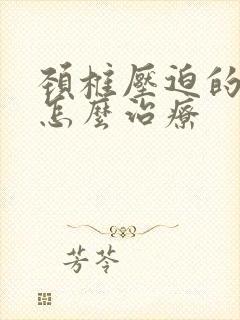 頚椎壓迫的
怎麼治療
芳苓